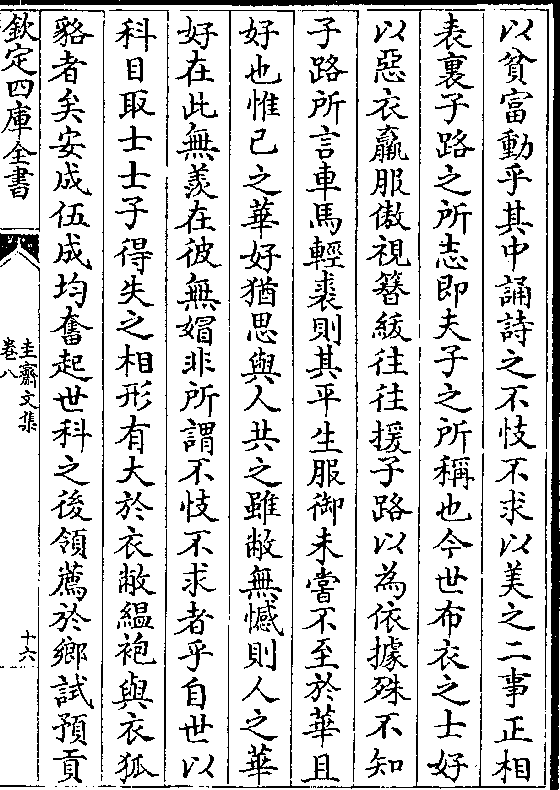 以貧富動乎其中誦詩之不忮不求以美之二事正相
表裏子路之所志即夫子之所稱也今世布衣之士好
以惡衣羸服傲視簪紱往往援子路以為依據殊不知
子路所言車馬輕裘則其平生服御未嘗不至於華且
好也惟已之華好猶思與人共之雖敝無憾則人之華
好在此無羨在彼無媢非所謂不忮不求者乎自世以
科目取士士子得失之相形有大於衣敝緼袍與衣狐
貉者矣安成伍成均奮起世科之後領薦於鄉試預貢
欽定四庫全書
圭齋文集
卷八
十六